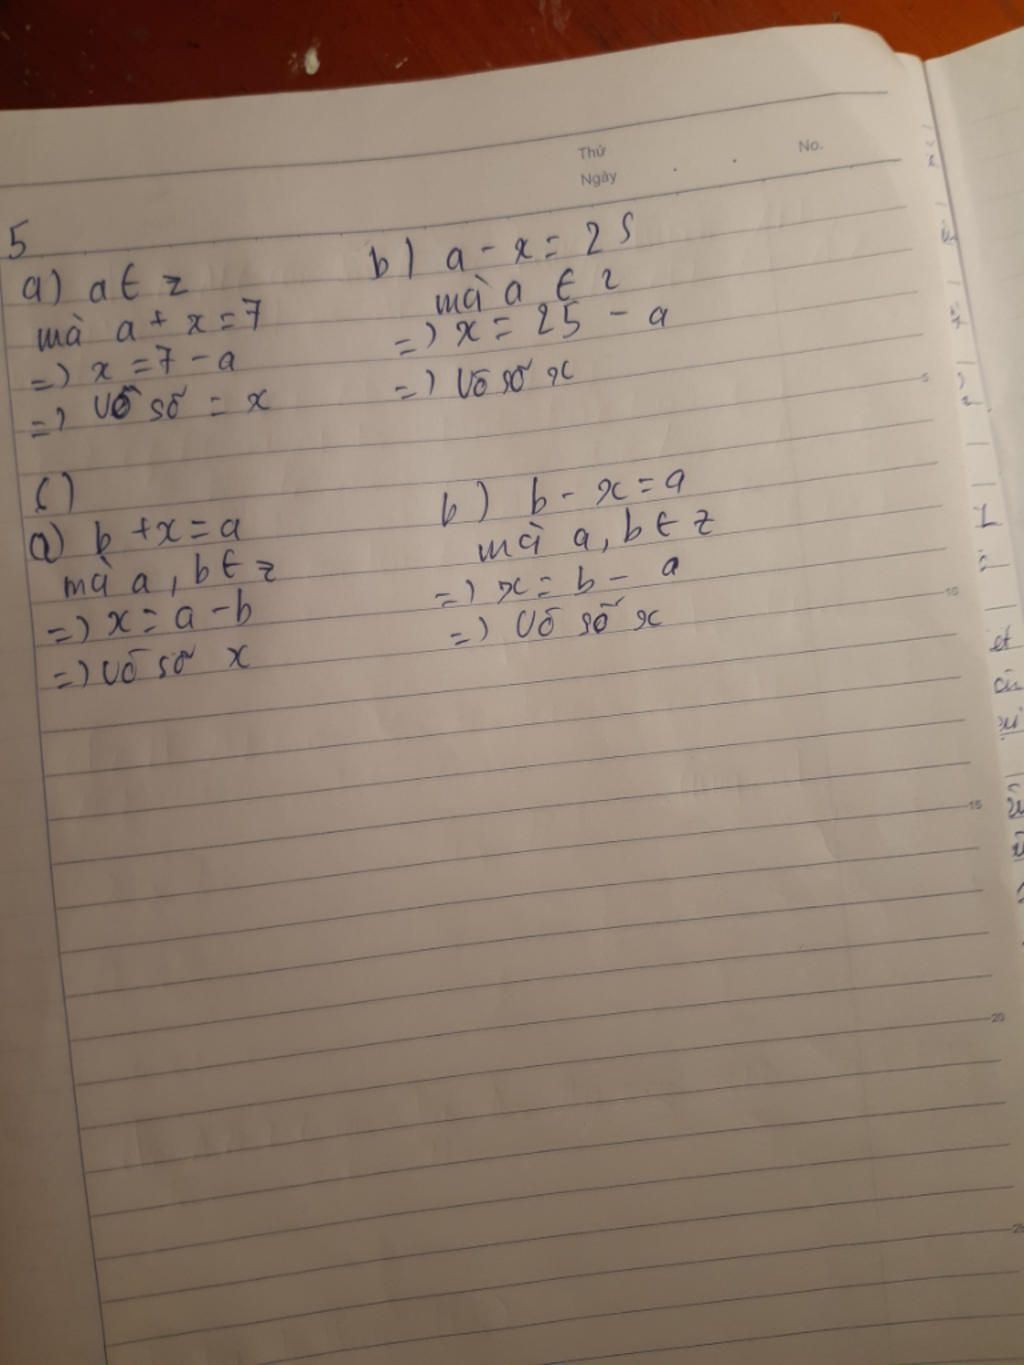 Thứ
Ngày
No.
5
a) a ∈ z
mà a + x = 7
=) x = 7 - a
=) Vô số = x
b) a - x = 25
mà a ∈ z
=) x = 25 - a
=) Vô số x
6)
a) b + x = a
mà a, b ∈ z
=) x = a - b
=) Vô số x
b) b - x = a
mà a, b ∈ z
=) x = b - a
=) Vô số x
5
10
15
20